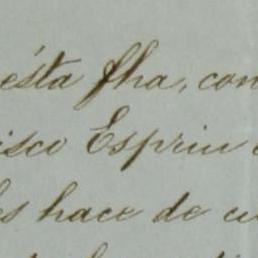 ésta fha, con
isco Espriu
s hace de cu